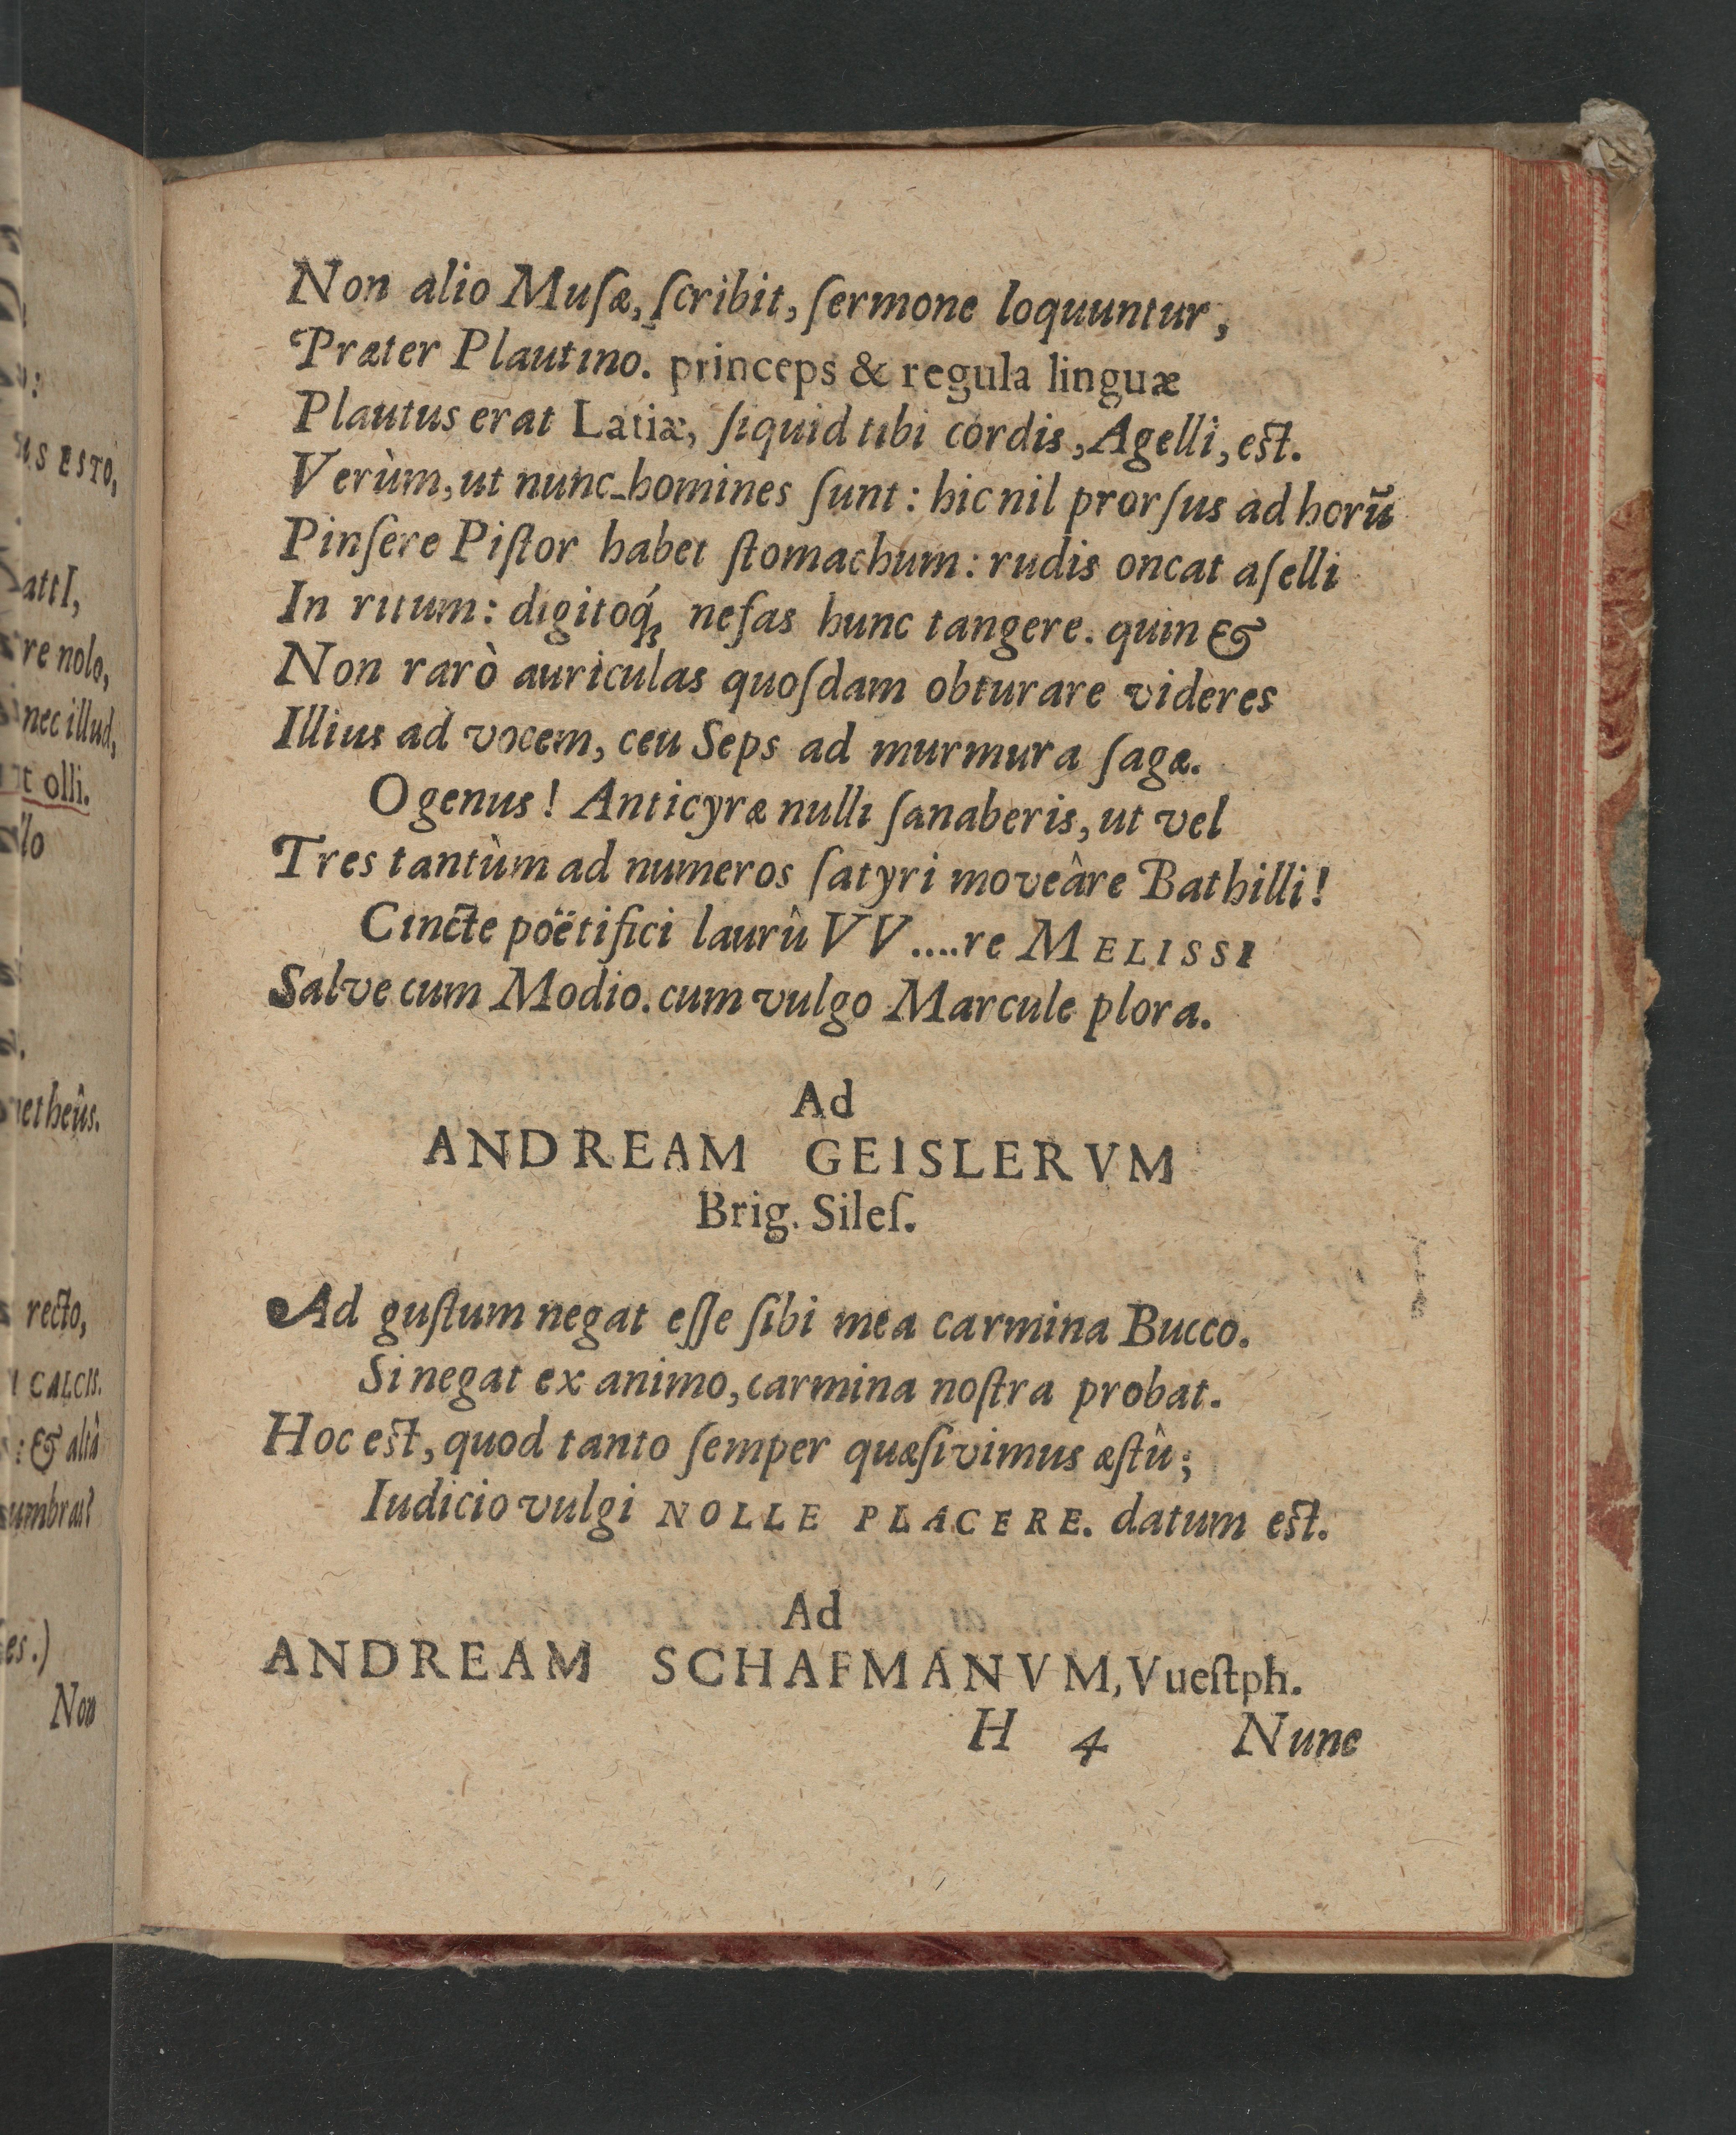 Non alio Muſæ, ſcribit, ſermone loquuntur,
Præter Plautino. princeps & regula linguæ
Plautus erat Latiæ, ſiquid tibi cordis, Agelli, eſt.
Verùm, ut nunc homines ſunt: hic nil prorſus ad horũ
Pinſere Piſtor habet ſtomachum: rudis oncat aſelli
In ritum: digitoq́ꝫ nefas hunc tangere. quin &
Non rarò auriculas quoſdam obturare videres
Illius ad vocem, ceu Seps ad murmura ſagæ.
O genus! Anticyræ nulli ſanaberis, ut vel
Tres tantùm ad numeros ſatyri moveâre Bathilli!
Cincte poëtifici laurû VV....re MELISSI
Salve cum Modio. cum vulgo Marcule plora.
Ad
ANDREAM GEISLERVM
Brig. Sileſ.
Ad guſtum negat eſſe ſibi mea carmina Bucco.
Si negat ex animo, carmina noſtra probat.
Hoc eſt, quod tanto ſemper quæſivimus æſtû;
Iudicio vulgi NOLLE PLACERE. datum eſt.
Ad
ANDREAM SCHAFMANVM, Vueſtph.
H 4 Nunc
US ESTO,
re nolo,
nec illud,
olli.
recto,
CALCIS.
: & aliâ
Non